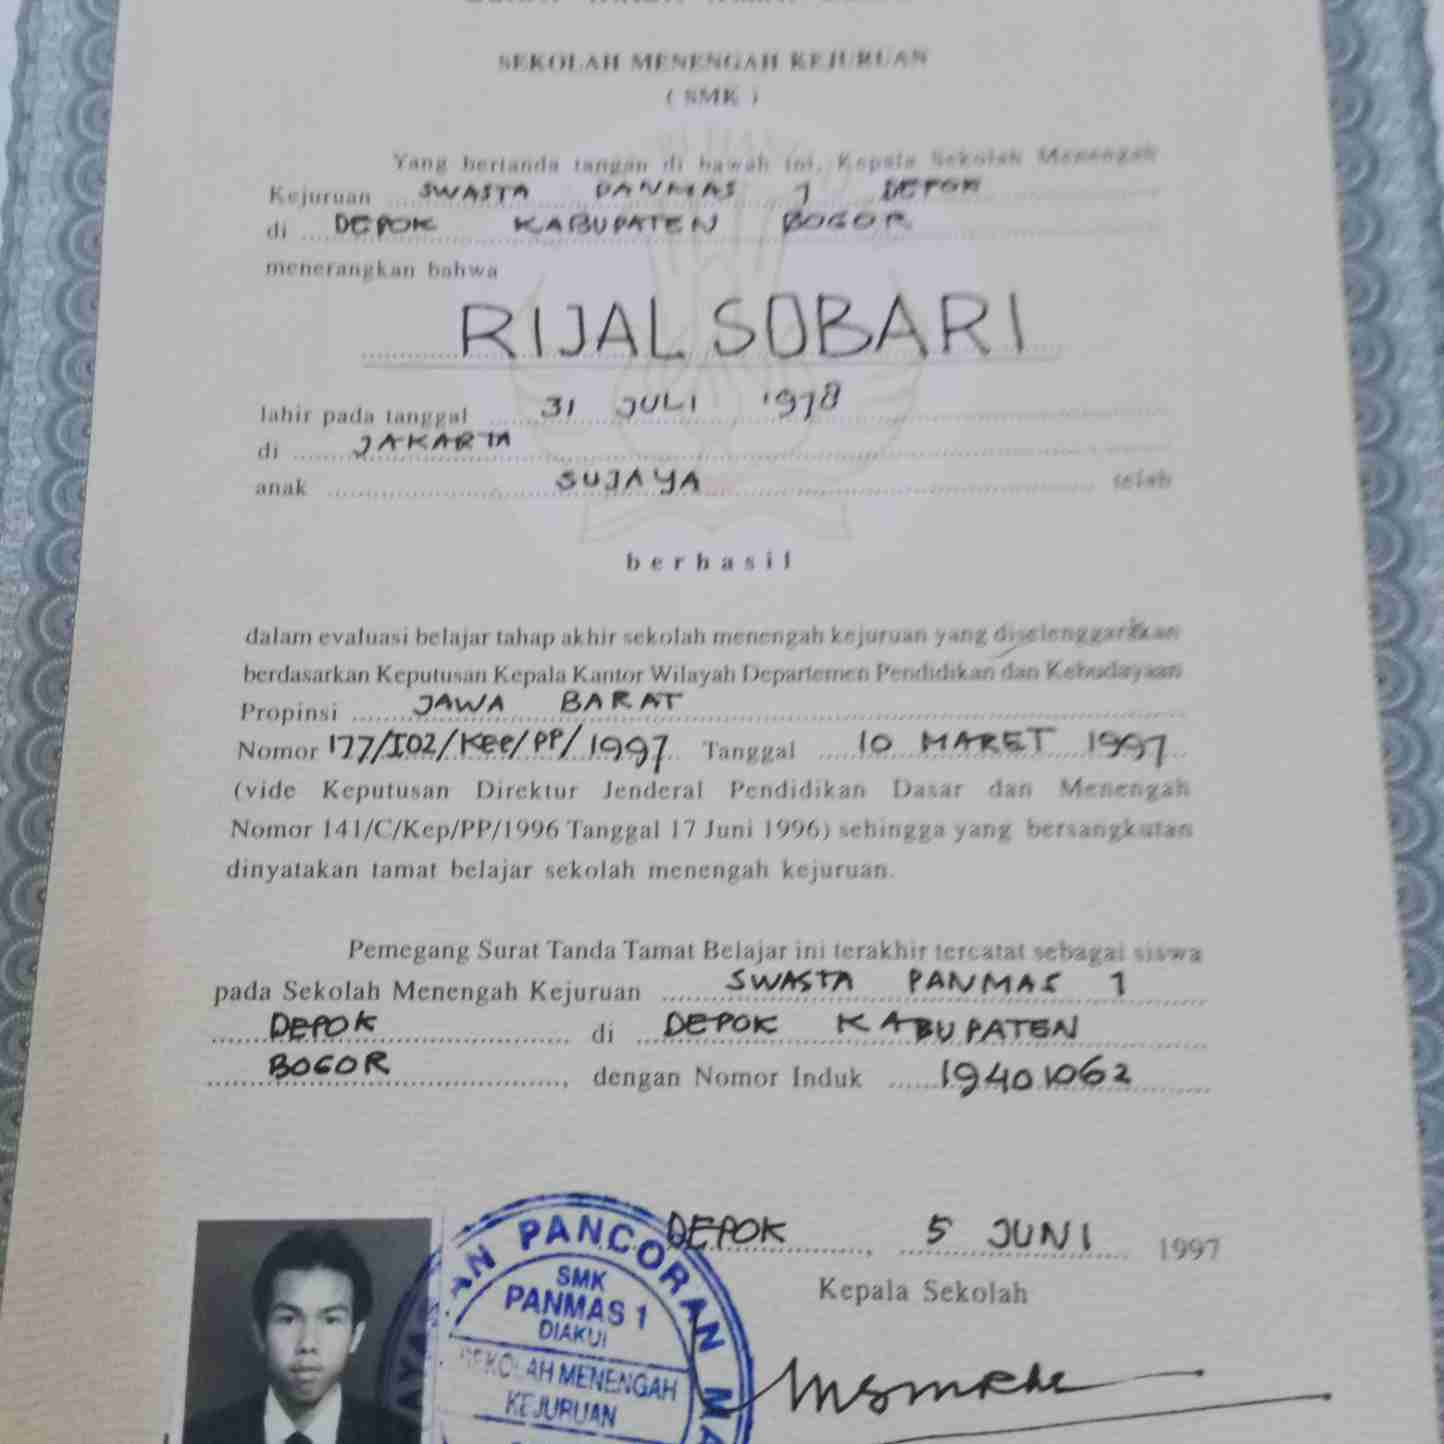 SEKOLAH MENENGAH KEJURUAN
( SMK )
Yang bertanda tangan di bawah ini, Kepala Sekolah Menengah
Kejuruan SWASTA PANMAS 1 DEPOK
di DEPOK KABUPATEN BOGOR
menerangkan bahwa
RIJAL SOBARI
lahir pada tanggal 31 JULI 1978
di JAKARTA
anak SUJAYA telah
berhasil
dalam evaluasi belajar tahap akhir sekolah menengah kejuruan yang diselenggarakan
berdasarkan Keputusan Kepala Kantor Wilayah Departemen Pendidikan dan Kebudayaan
Propinsi JAWA BARAT
Nomor 177/I02/Kep/PP/1997 Tanggal 10 MARET 1997
(vide Keputusan Direktur Jenderal Pendidikan Dasar dan Menengah
Nomor 141/C/Kep/PP/1996 Tanggal 17 Juni 1996) sehingga yang bersangkutan
dinyatakan tamat belajar sekolah menengah kejuruan.
Pemegang Surat Tanda Tamat Belajar ini terakhir tercatat sebagai siswa
pada Sekolah Menengah Kejuruan SWASTA PANMAS 1
DEPOK di DEPOK KABUPATEN
BOGOR, dengan Nomor Induk 19401062
DEPOK, 5 JUNI 1997
Kepala Sekolah
PANCORAN
SMK
PANMAS 1
DIAKUI
SEKOLAH MENENGAH
KEJURUAN